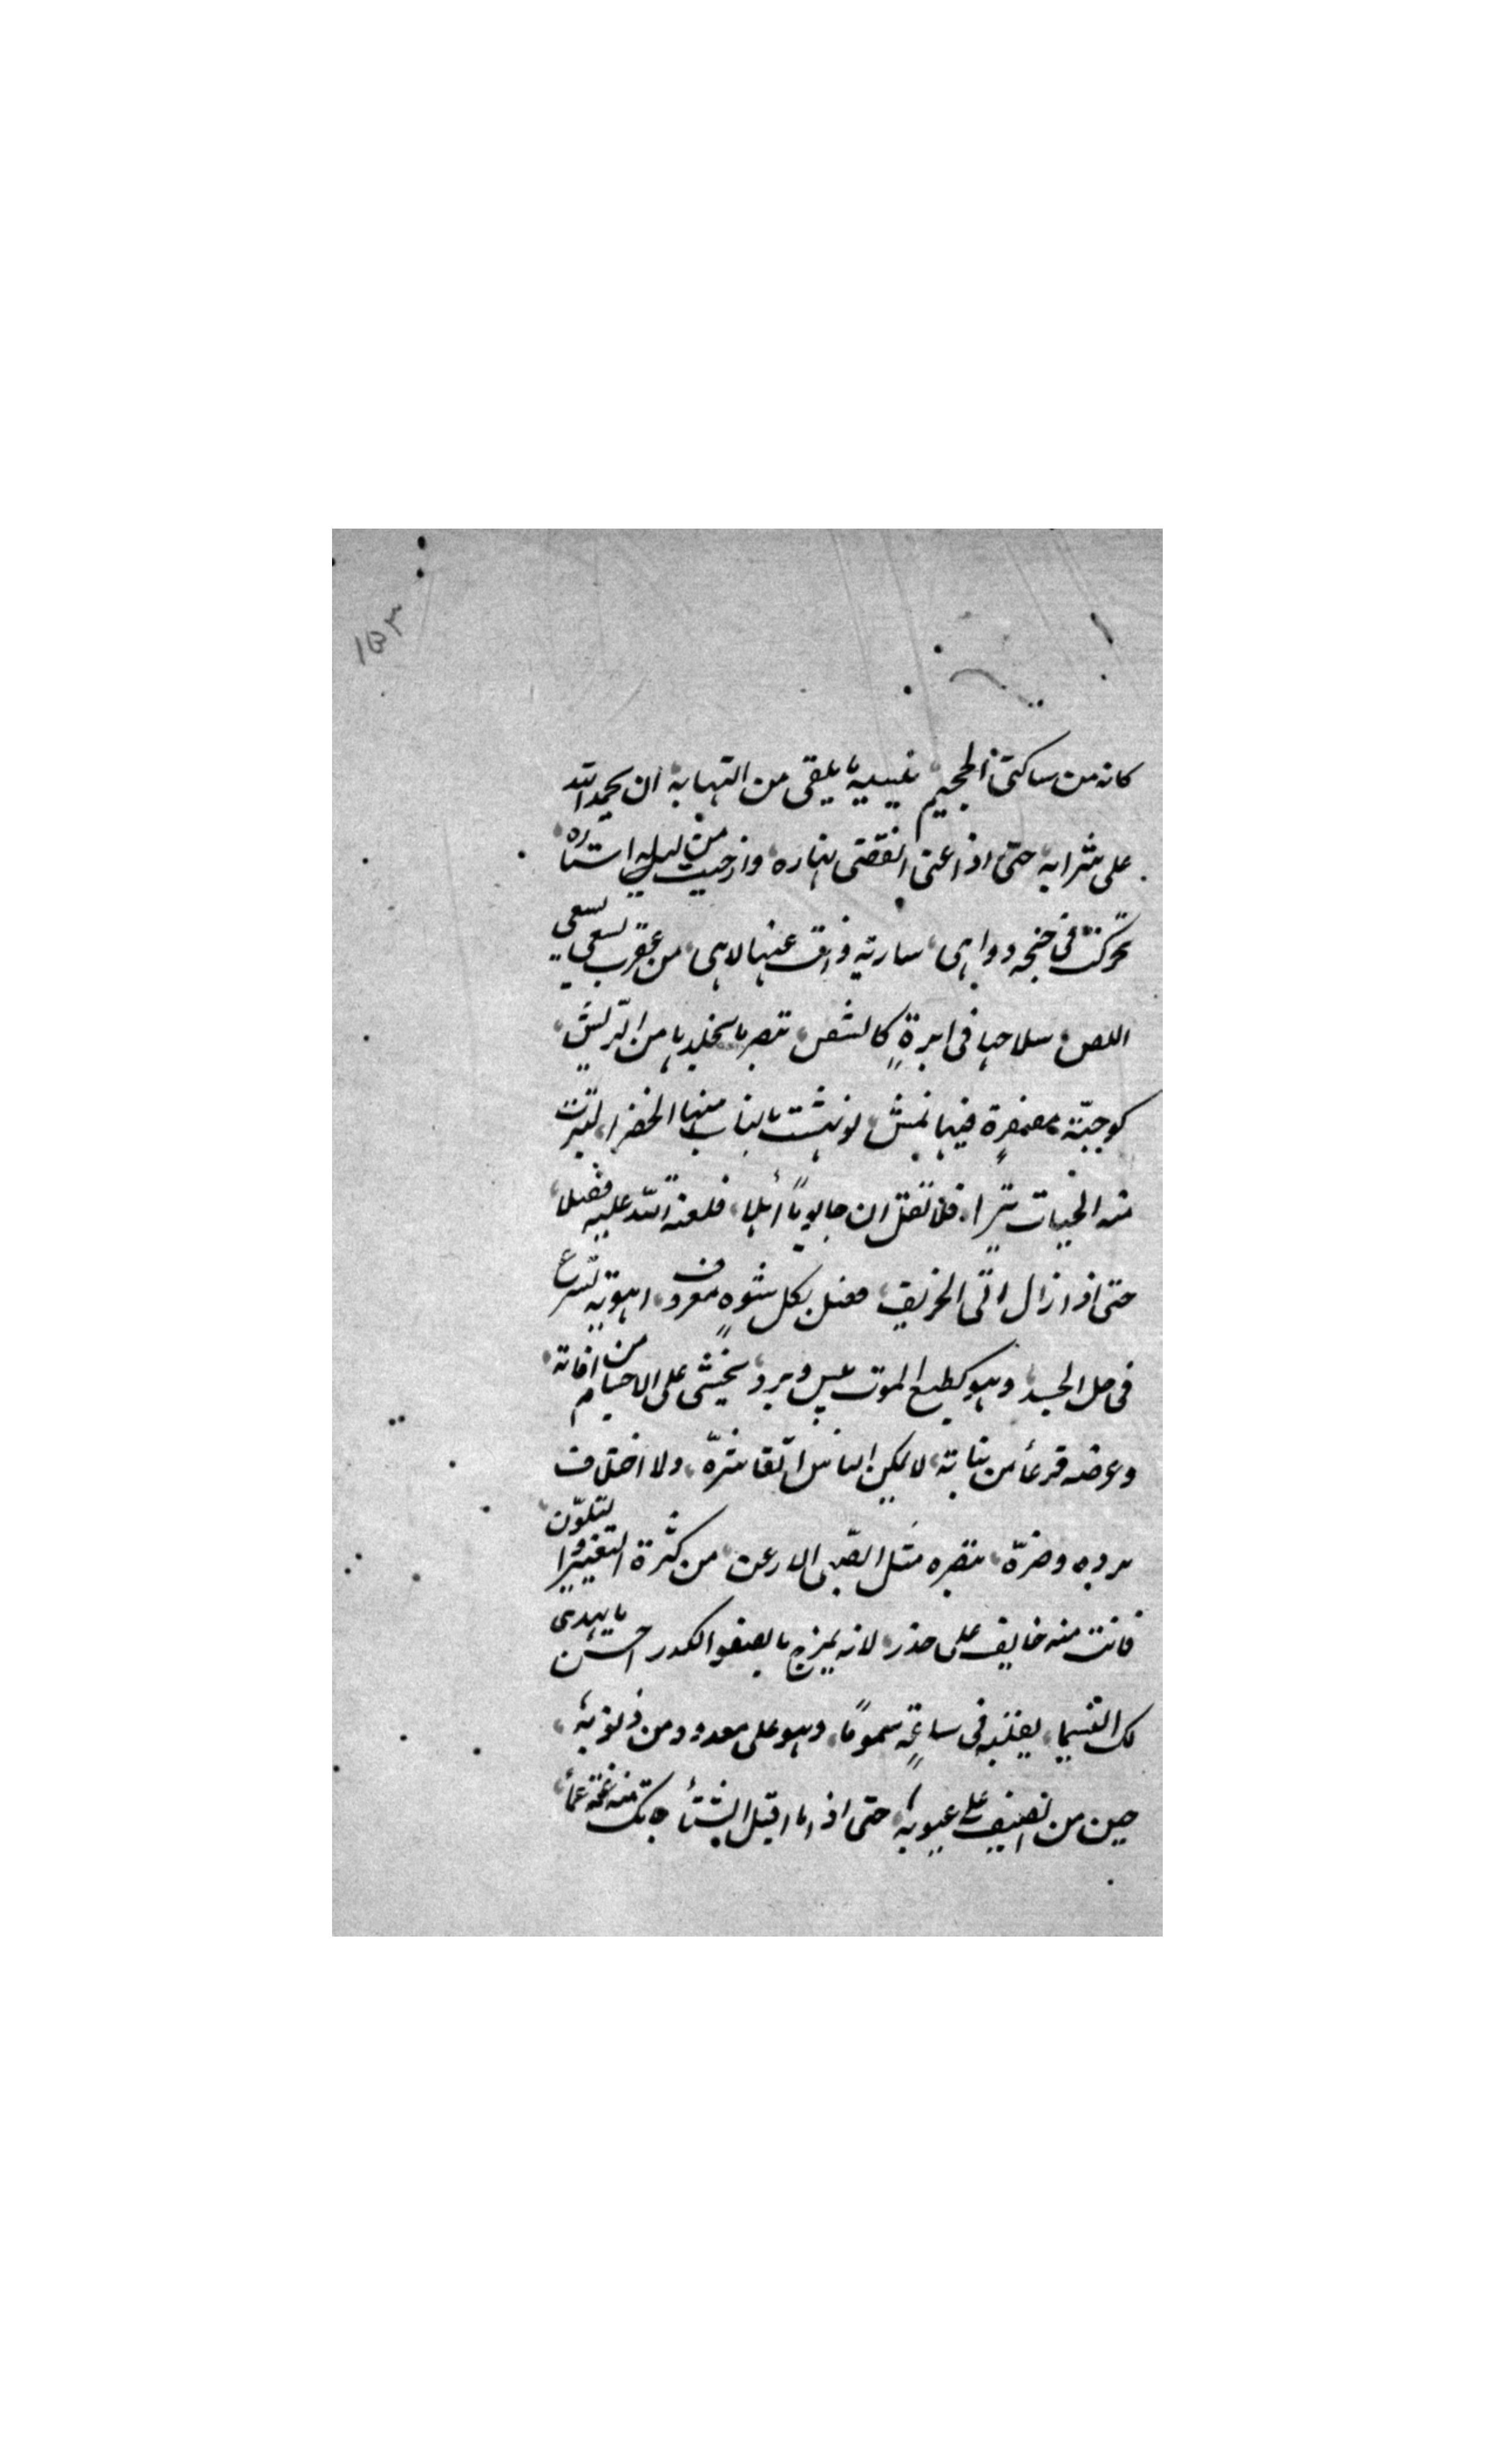 ١٥٣
كانه من ساكنى الجحيم ينسيه ما يلقى من التهابه ان يحمد الله
على شرابه حتى اذا عنى انقضى نهاره وارخيت من ليله استاره
تحركت فى جنحه دواهى سارية وانت عنها لاهى من عقرب يسعى كسعى
اللص سلاحها فى ابرة كالشص تبصر ما بجلدها من الرقش
كوجبة معصفرة فيها نمش لو نهشت بالناب منها الخضرا لنثرت
منه الحيات نثرا فلا تقل ان جا يوما اهلا فلعنة الله عليه فصلا
حتى اذا زال اتى الخريف فصل بكل شوه معروف اهويته تسرع
فى حل الجسد وهو كطبع الموت يبس وبرد يخشى على الاجسام من افاته
وعرضه قرعا من بناته لا يمكن الناس اتقا شره ولا اختلاف
برده وضره تبصره مثل الصبى الارعن من كثرة التغيير والتلون
فانت منه خايف على حذر لانه يمزج بالصفو الكدر احسن ما يهدى
لك النسيما يقلبه فى ساعة سموما وهو على معدود من ذنوبه
حين من الصيف على عيوبه حتى اذا ما اقبل الشتأ جاتك منه غمة غمأ